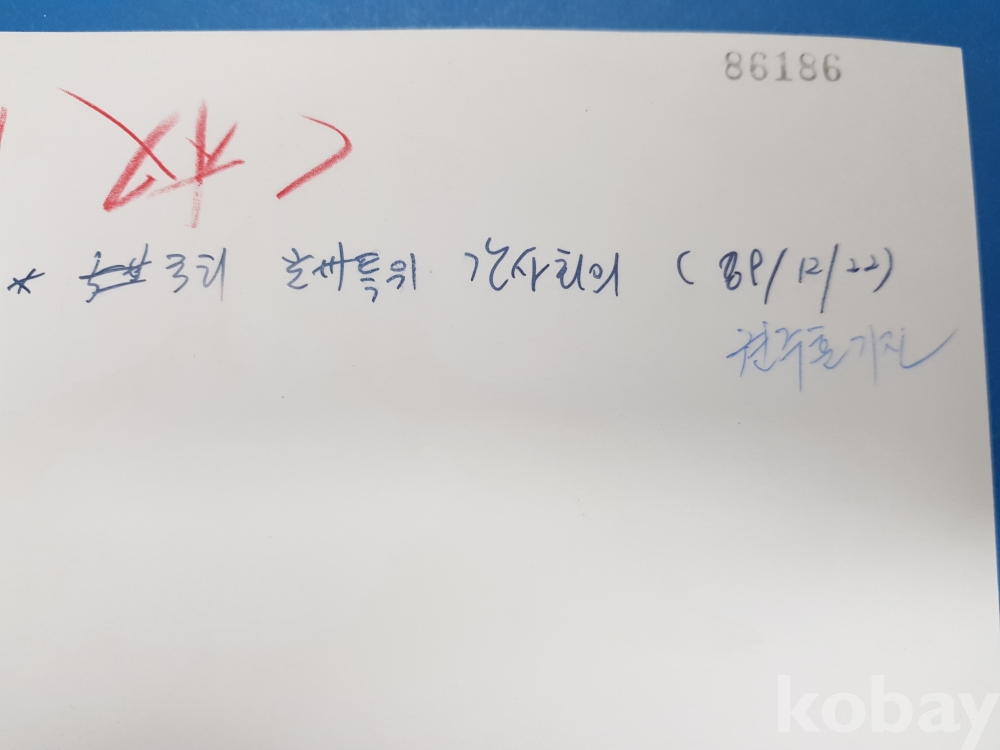 86186
* 국회 간사회의 (89/12/22)
권주훈 기자
kobay